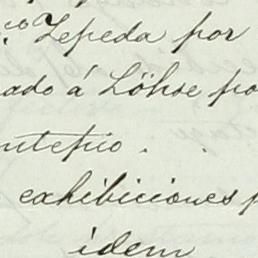 co Zepeda por
ado á Löhse po
ntepio .
exhibiciones p
idem